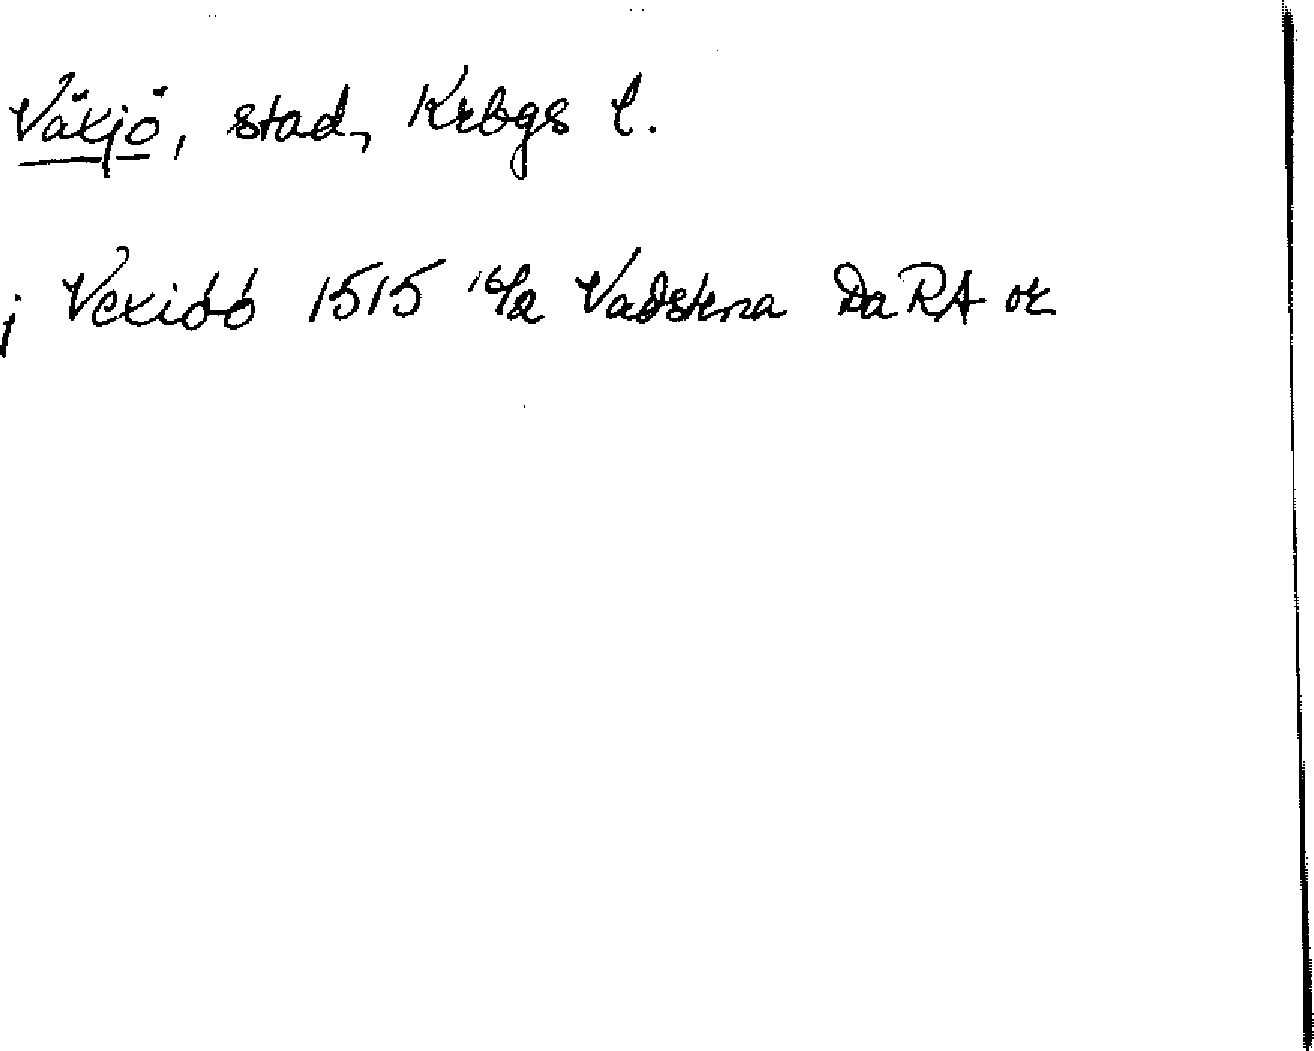 Växjö, stad, Krbgs l.
j Vexiöö 1515 16/2 Vadstena Da RA or